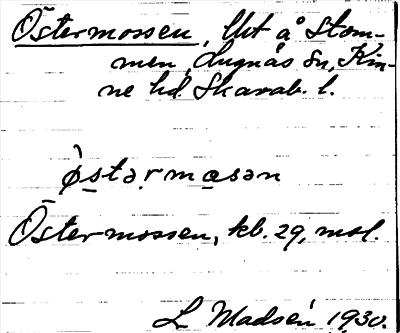 Östermossen, Utt å Stom-
men, Lugnås sn, Kin-
ne hd Skarab. l.
ø̀stərmɷsən
Östermossen, kb. 29, mosl.
L Madsén 1930.